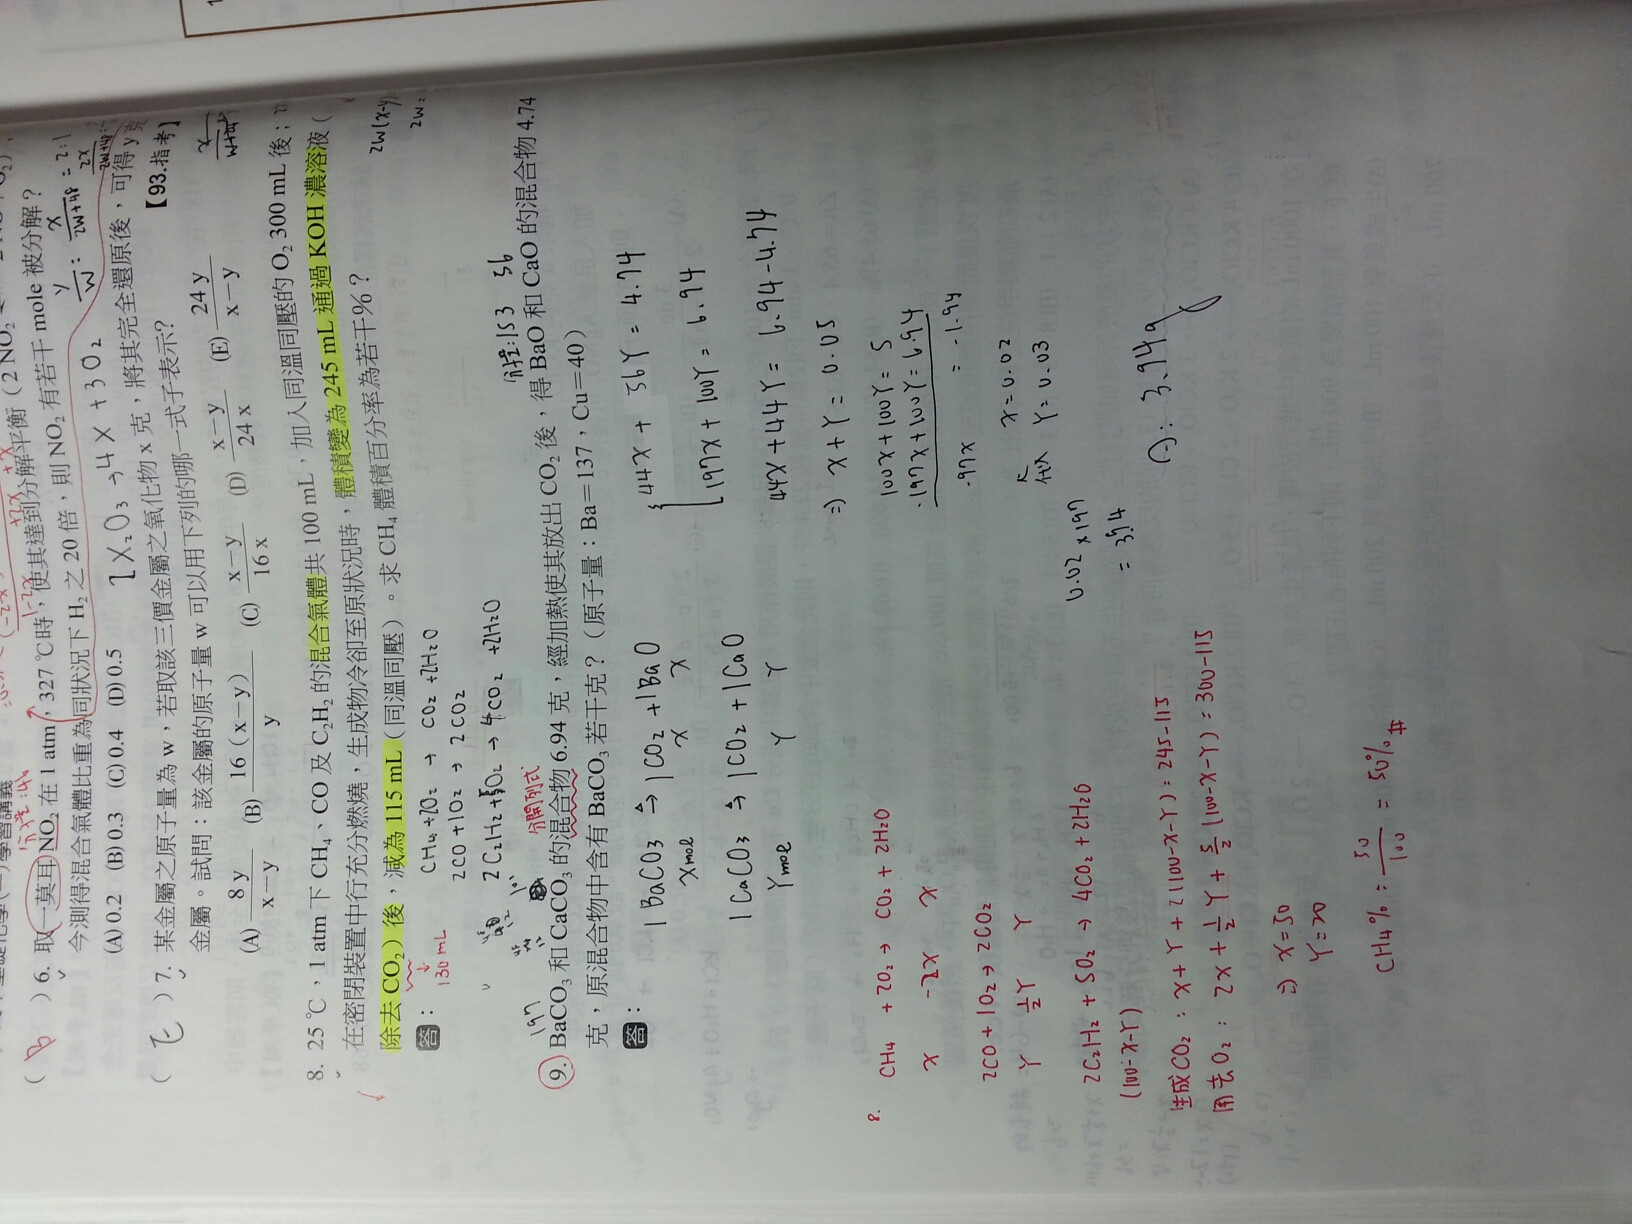 基礎化學(一)學習講義
( B ) 6. 取一莫耳 NO₂ 在 1 atm，327 ℃時，使其達到分解平衡（2 NO₂
今測得混合氣體比重為同狀況下 H₂ 之 20 倍，則 NO₂ 有若干 mole 被分解？
(A) 0.2 (B) 0.3 (C) 0.4 (D) 0.5
2X₂O₃→4X+3O₂
( E ) 7. 某金屬之原子量為 w，若取該三價金屬之氧化物 x 克，將其完全還原後，可得 y 克
金屬。試問：該金屬的原子量 w 可以用下列的哪一式子表示？ 【93.指考】
(A) 8y/(x−y) (B) 16(x−y)/y (C) (x−y)/16x (D) (x−y)/24x (E) 24y/(x−y)
8. 25 ℃，1 atm 下 CH₄、CO 及 C₂H₂ 的混合氣體共 100 mL，加入同溫同壓的 O₂ 300 mL 後；
在密閉裝置中行充分燃燒，生成物冷卻至原狀況時，體積變為 245 mL 通過 KOH 濃溶液（
除去 CO₂）後，減為 115 mL（同溫同壓）。求 CH₄ 體積百分率為若干%？
答：
130 mL
CH₄+2O₂→CO₂+2H₂O
2CO+1O₂→2CO₂
2C₂H₂+5O₂→4CO₂+2H₂O
分開列式
197
分子量:153 56
9. BaCO₃ 和 CaCO₃ 的混合物 6.94 克，經加熱使其放出 CO₂ 後，得 BaO 和 CaO 的混合物 4.74
克，原混合物中含有 BaCO₃ 若干克？（原子量：Ba＝137，Cu＝40）
答：
1BaCO₃→1CO₂+1BaO
Xmol X X
1CaCO₃→1CO₂+1CaO
Ymol Y Y
44X+56Y=4.74
197X+100Y=6.94
44X+44Y=6.94-4.74
⇒X+Y=0.05
100X+100Y=5
-197X+100Y=6.94
-97X = -1.94
X=0.02
代入 Y=0.03
0.02×197
=3.94
A: 3.94g
8.
CH₄ +2O₂→CO₂+2H₂O
X -2X X
2CO+1O₂→2CO₂
Y ½Y Y
2C₂H₂+5O₂→4CO₂+2H₂O
(100-X-Y)
生成CO₂：X+Y+2(100-X-Y)=245-115
用去O₂：2X+½Y+5/2(100-X-Y)=300-115
⇒X=50
Y=20
CH₄%：50/100=50%#